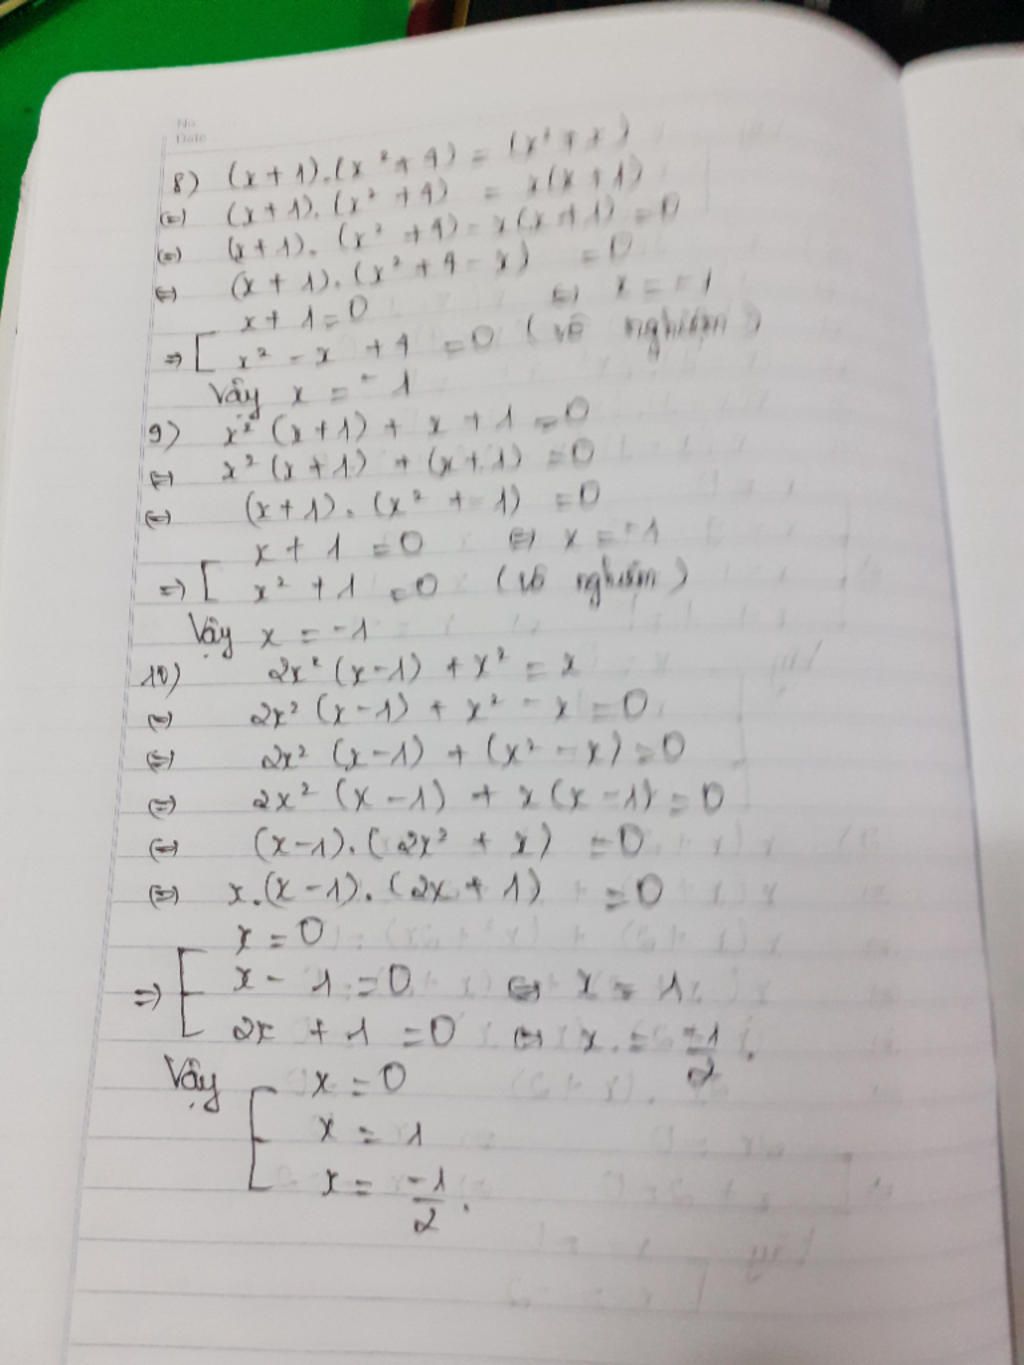 No.
Date
8) (x+1).(x² + 4) = (x² + x)
(=) (x+1).(x² + 4) = x(x+1)
(=) (x+1).(x² + 4) - x(x+1) = 0
(=) (x+1).(x² + 4 - x) = 0
x + 1 = 0 (=) x = -1
=) [ x² - x + 4 = 0 (vô nghiệm)
Vậy x = -1
9) x² (x+1) + x + 1 = 0
(=) x² (x+1) + (x+1) = 0
(=) (x+1).(x² + 1) = 0
x + 1 = 0 (=) x = -1
=) [ x² + 1 = 0 (vô nghiệm)
Vậy x = -1
10) 2x² (x-1) + x² = x
(=) 2x² (x-1) + x² - x = 0
(=) 2x² (x-1) + (x² - x) = 0
(=) 2x² (x-1) + x(x-1) = 0
(=) (x-1).(2x² + x) = 0
(=) x.(x-1).(2x + 1) = 0
x = 0
=) [ x - 1 = 0 (=) x = 1.
2x + 1 = 0 (=) x = -1/2.
Vậy [ x = 0
x = 1
x = -1/2.